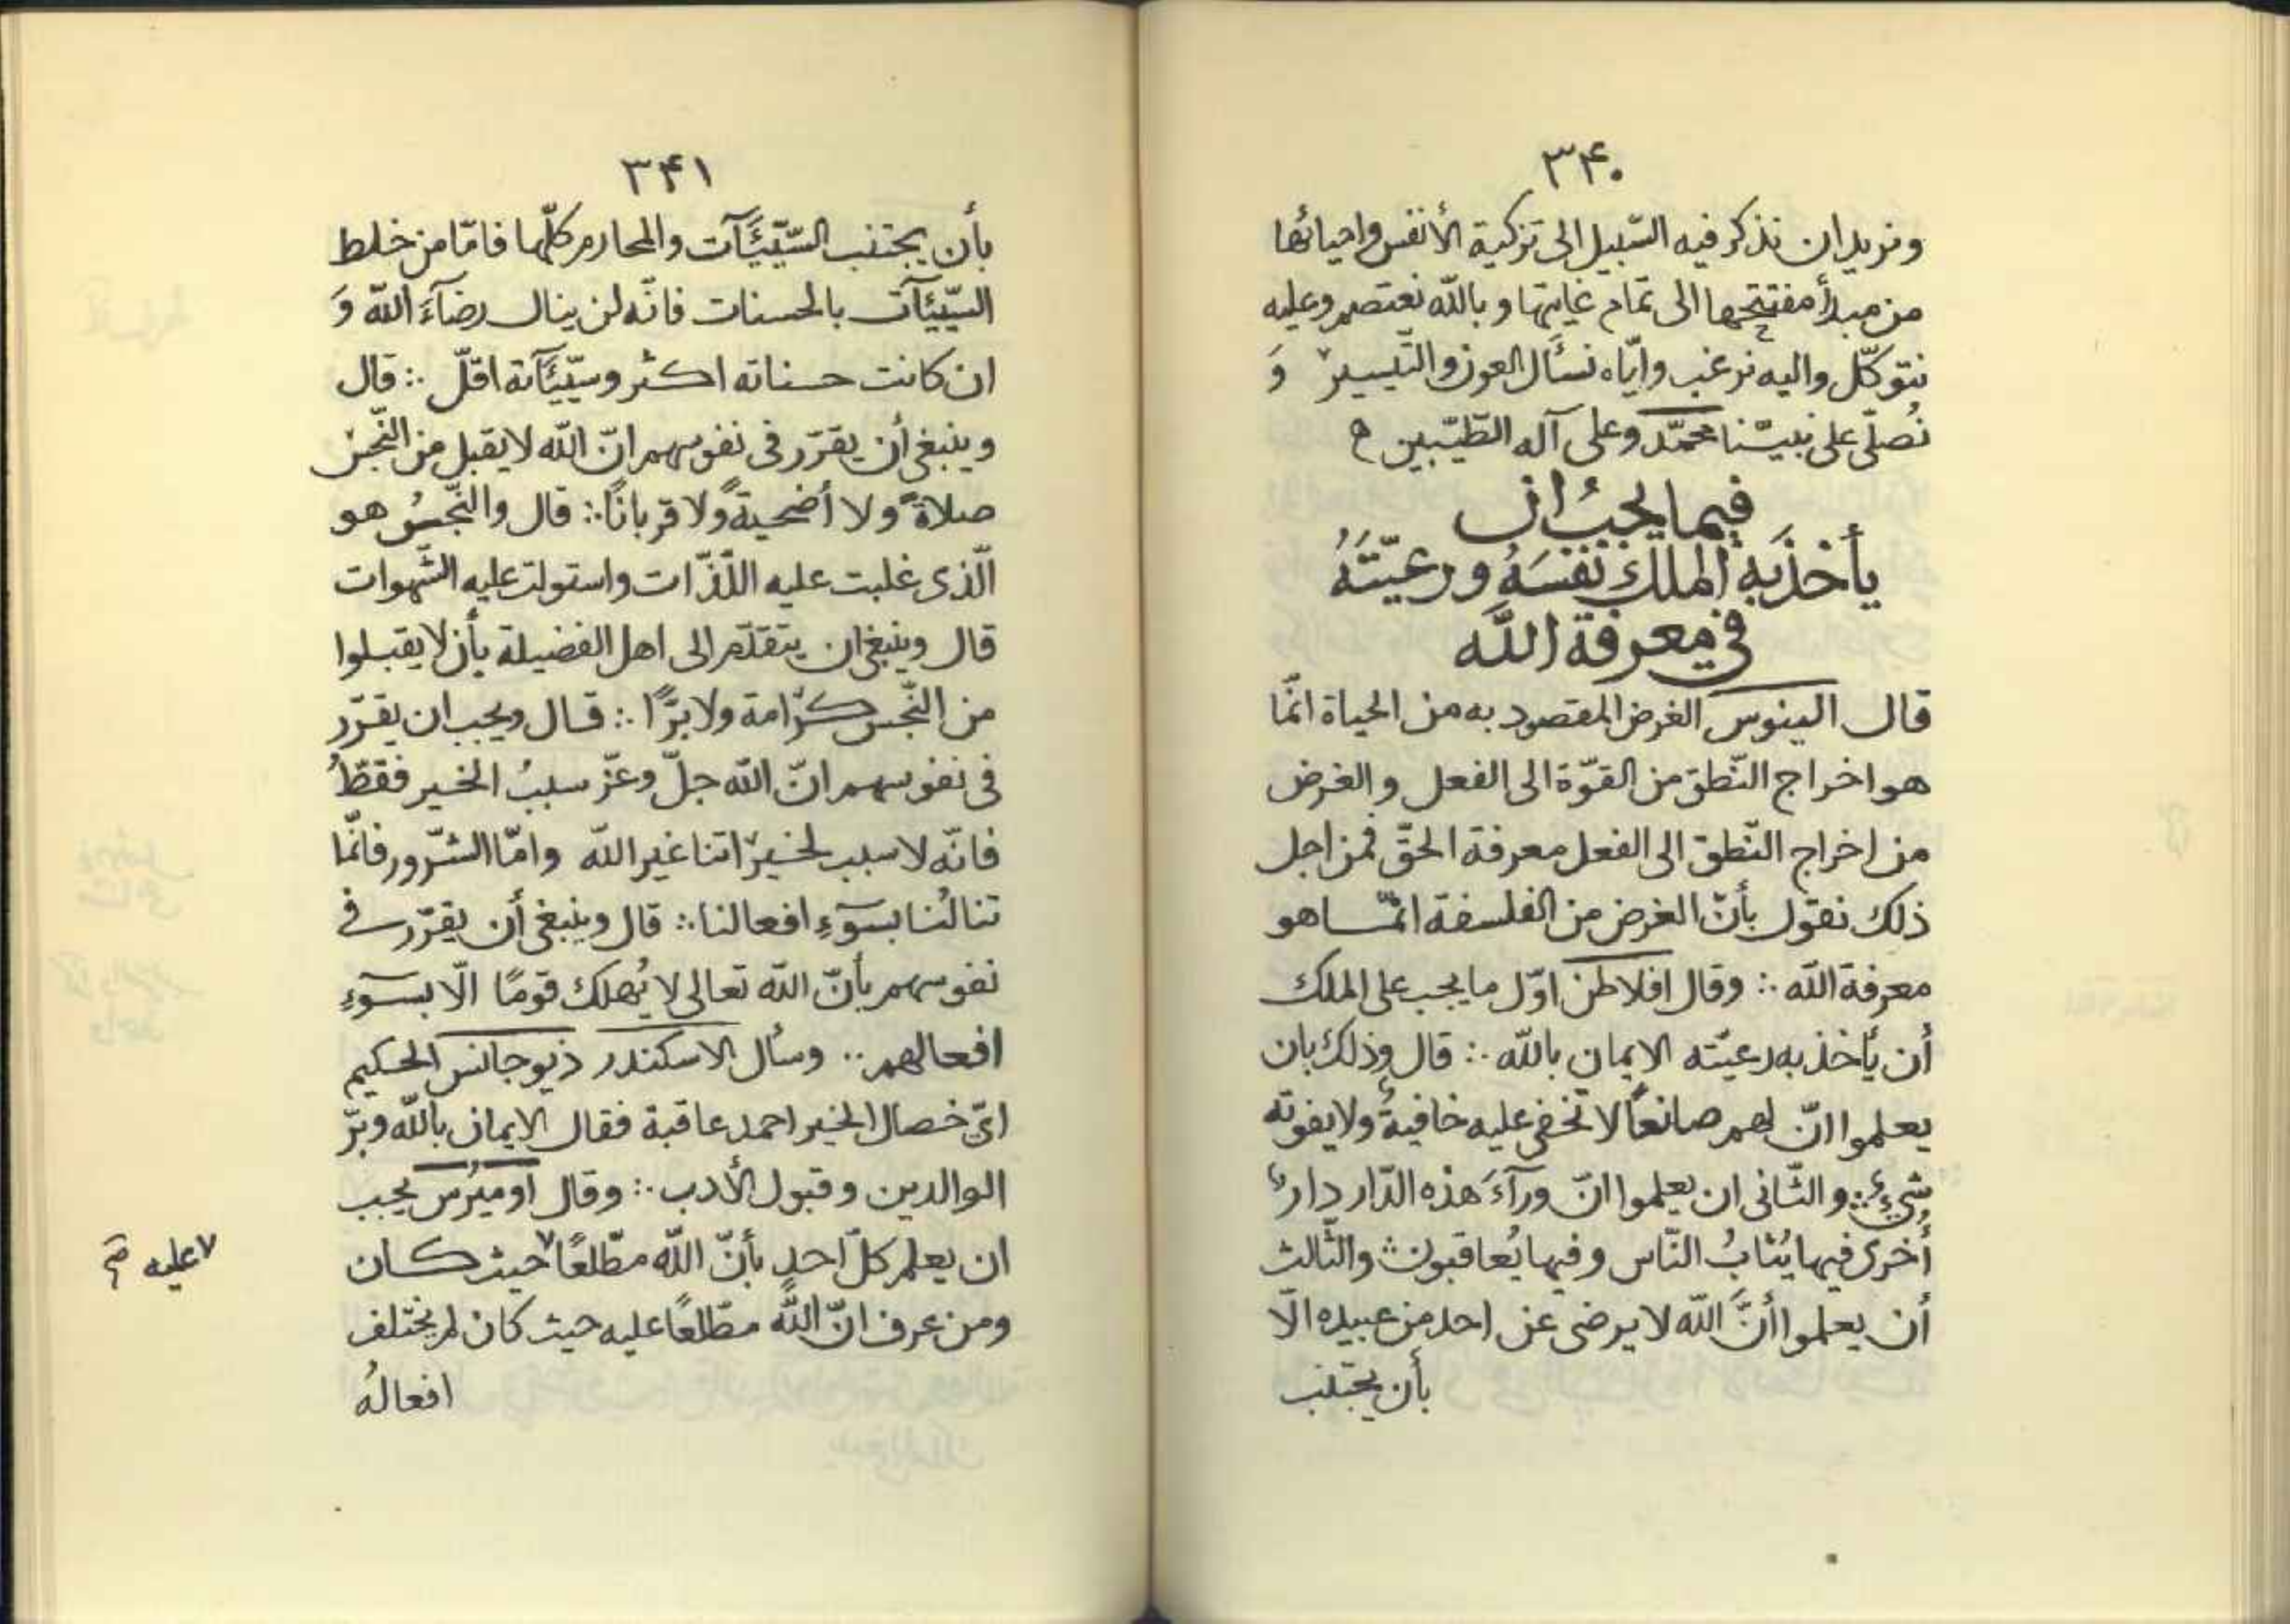 ۳۴۰
ونريد ان نذكر فيه السّبيل الى تزكية الأنفس واحيائها
من مبدأ مفتتحها الى تمام غايتها وبالله نعتصم وعليه
نتوكّل واليه نرغب وايّاه نسأل العون والتّيسير وَ
نُصلّى على نبيّنا محمّد وعلى آله الطّيّبين ح
فيما يجبُ ان
يأخذَ به الملك نفسَهُ ورعيّتَهُ
في معرفة الله
قال الينوس الغرض المقصود به من الحياة انّما
هو اخراج النّطق من القوّة الى الفعل والغرض
من اخراج النّطق الى الفعل معرفة الحقّ فمن اجل
ذلك نقول بأنّ الغرض من الفلسفة انّما هو
معرفة الله ∴ وقال افلاطن اوّل ما يجب على الملك
أن يأخذ به رعيّته الايمان بالله ∴ قال وذلك بان
يعلموا انّ لهم صانعًا لا تخفى عليه خافيةٌ ولا يفوته
شيءٌ ∴ والثّانى ان يعلموا انّ ورآءَ هذه الدّار دارٌ
أُخرى فيها يُثابُ النّاس وفيها يُعاقبون ∴ والثّالث
أن يعلموا أنَّ الله لا يرضى عن احد من عبيده الّا
بأن يجتنب
۳۴۱
بأن يجتنب السّيّئآت والمحارم كلّها فامّا من خلط
السّيّئآت بالحسنات فانّه لن ينال رضآءَ الله وَ
ان كانت حسناته اكثر وسيّئآته اقلّ ∴ قال
وينبغى أن يقرّر فى نفوسهم انّ الله لا يقبل من النّجس
صلاةً ولا أضحيةً ولا قربانًا ∴ قال والنّجسُ هو
الّذى غلبت عليه اللّذّات واستولت عليه الشّهوات
قال وينبغى ان يتقدّم الى اهل الفضيلة بأن لا يقبلوا
من النّجس كرامة ولا برًّا ∴ قال ويجب ان يقرّر
فى نفوسهم انّ الله جلّ وعزّ سببُ الخير فقطّ
فانّه لا سبب لخيراتنا غير الله وامّا الشّرور فانّما
تنالُنا بسوٓءِ افعالنا ∴ قال وينبغى أن يقرّر في
نفوسهم بأنّ الله تعالى لا يُهلك قومًا الّا بسوٓءِ
افعالهم ∴ وسأل الاسكندر ذيوجانس الحكيم
اىّ خصال الخير احمد عاقبة فقال الايمان بالله وبرّ
الوالدين وقبول الأدب ∴ وقال اوميرُس يجب
ان يعلم كلّ احدٍ بأنّ الله مطّلعًا٧ حيث كان
٧ عليه صح
ومن عرف انّ الله مطّلعًا عليه حيث كان لم يختلف
افعالُه